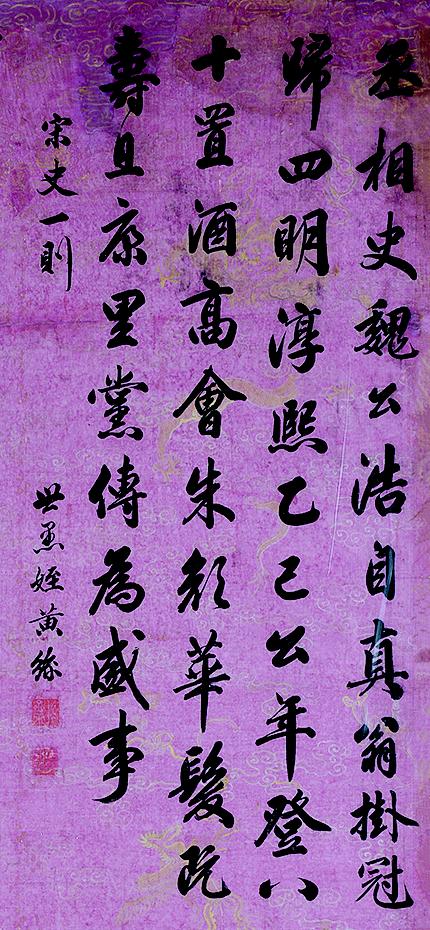 丞相史魏公浩自真翁掛冠
歸四明淳熙乙巳公年登八
十置酒高會朱顏華髮既
壽且康里黨傳為盛事
宋史一則
世愚姪黃